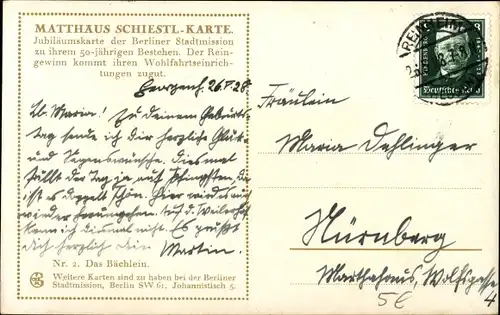 MATTHÄUS SCHIESTL-KARTE.
Jubiläumskarte der Berliner Stadtmission
zu ihrem 50-jährigen Bestehen. Der Rein-
gewinn kommt ihren Wohlfahrtseinrich-
tungen zugut.
26.V.28.
Lb. Maria! Zu deinem Geburts-
tag sende ich dir herzliche Glück-
und Segenswünsche. Diesmal
fällt der Tag ja auf Pfingsten, da
ist es doppelt schön. Hier wird es
kann ich diesmal nicht. Es grüßt
dich herzlich dein Martin.
Nr. 2. Das Bächlein.
Weitere Karten sind zu haben bei der Berliner
Stadtmission, Berlin SW 61, Johannistisch 5.
Deutsches Reich
Fräulein
Maria Dehlinger
Nürnberg
Marthahaus, Wolfsgasse
4
5€